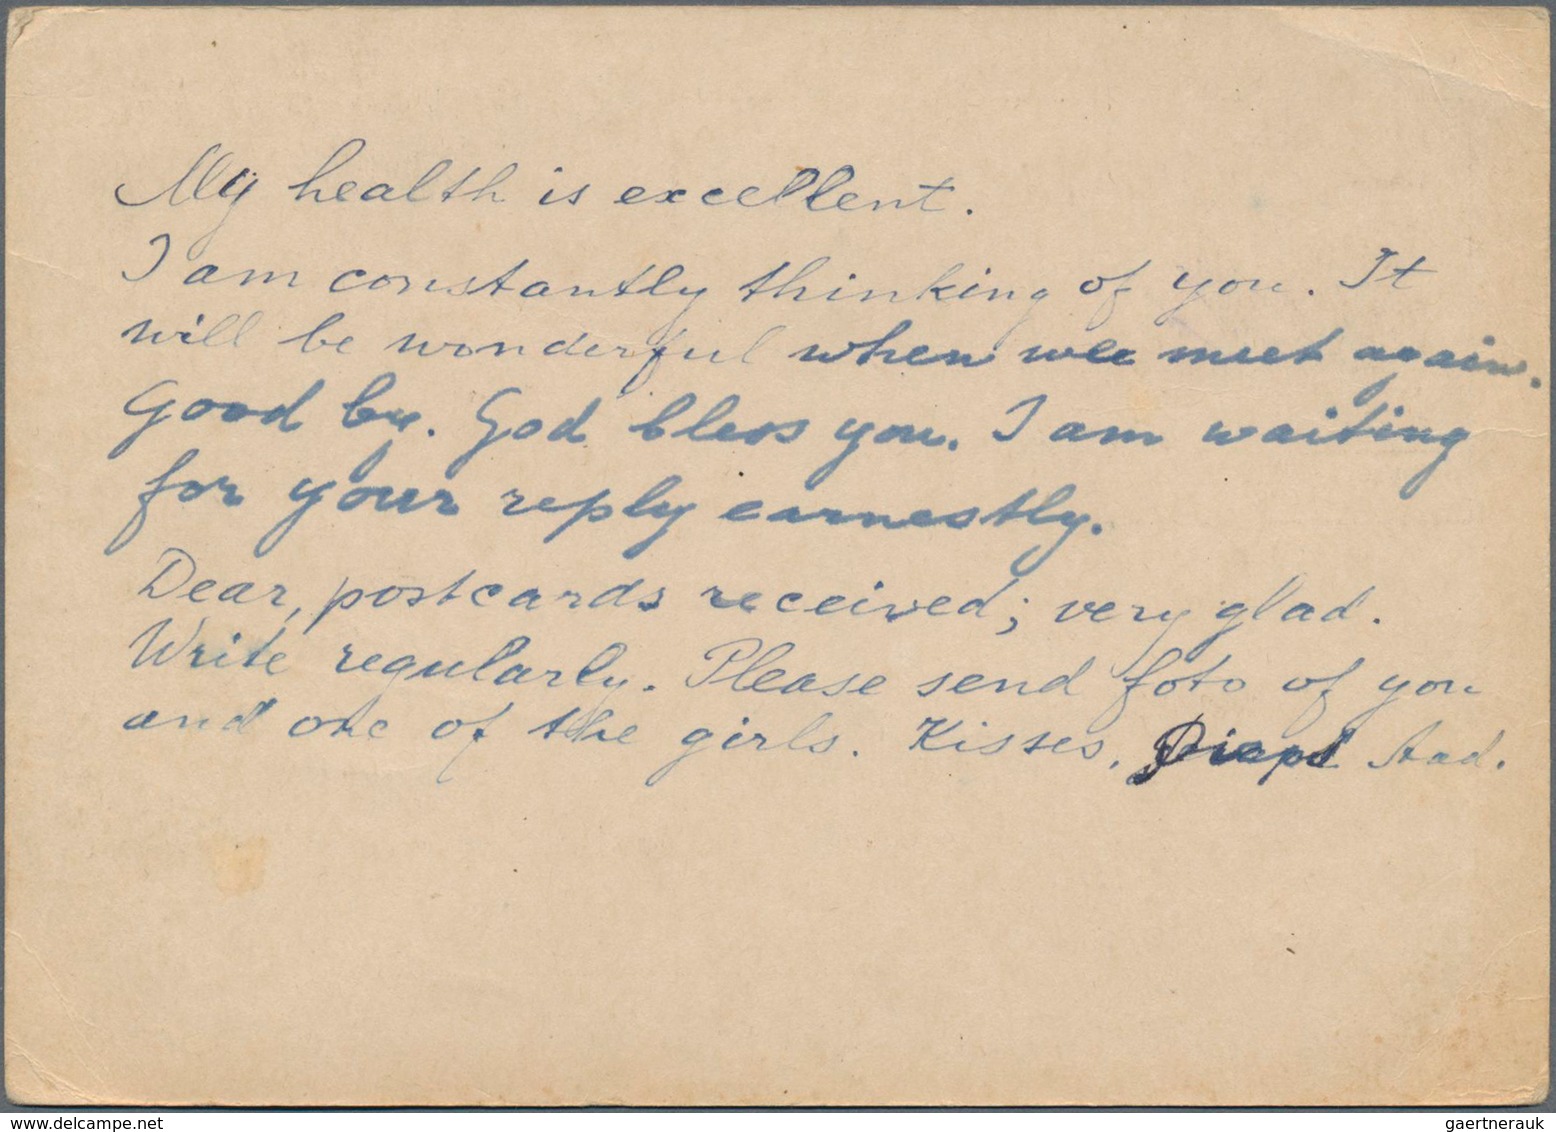 My health is excellent.
I am constantly thinking of you. It
will be wonderful when wee meet again.
Good by. God bless you. I am waiting
for your reply earnestly.
Dear, postcards received; very glad.
Write regularly. Please send foto of you
and one of the girls. Kisses, Aad.
gaertnerauk